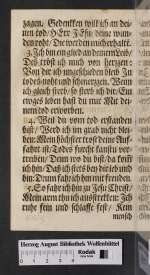 zagen. Gedencken will ich an dei-
nen tod/ HErr JEsu/ deine wun-
den roht/ Die werden mich erhalten.
3. Ich bin ein glied an deinem Leib/
Des tröst ich mich von hertzen:
Von dir ich ungescheiden bleib/ In
todes-noht und schmertzen. Wenn
ich gleich sterb/ so sterb ich dir: Ein
ewiges leben hast du mir Mit dei-
nem tod erworben.
4. Weil du vom tod erstanden
bist/ Werd ich im grab nicht blei-
ben: Mein höchster trost deine Auf-
fahrt ist/ Todes furcht kan sie ver-
treiben: Denn wo du bist/ da komm
ich hin/ Daß ich stets bey dir leb und
bin: Drum fahr ich hin mit freuden.
5. So fahr ich hin zu JEsu Christ/
Mein arm thu ich ausstrecken: Ich
ruhe sein und schlaffe fest/ Kein
mensch
Herzog August Bibliothek Wolfenbüttel